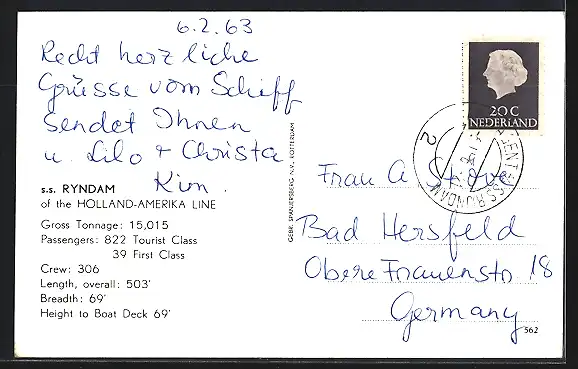 6.2.63
Recht herzliche
Grüsse vom Schiff
sendet Ihnen
u. Lilo + Christa
Kim.
s.s. RYNDAM
of the HOLLAND-AMERIKA LINE
Gross Tonnage: 15,015
Passengers: 822 Tourist Class
39 First Class
Crew: 306
Length, overall: 503'
Breadth: 69'
Height to Boat Deck 69'
GEBR. SPANJERSBERG N.V., ROTTERDAM
20 C
NEDERLAND
2
Frau A
Bad Hersfeld
Obere Frauenstr 18
Germany
562